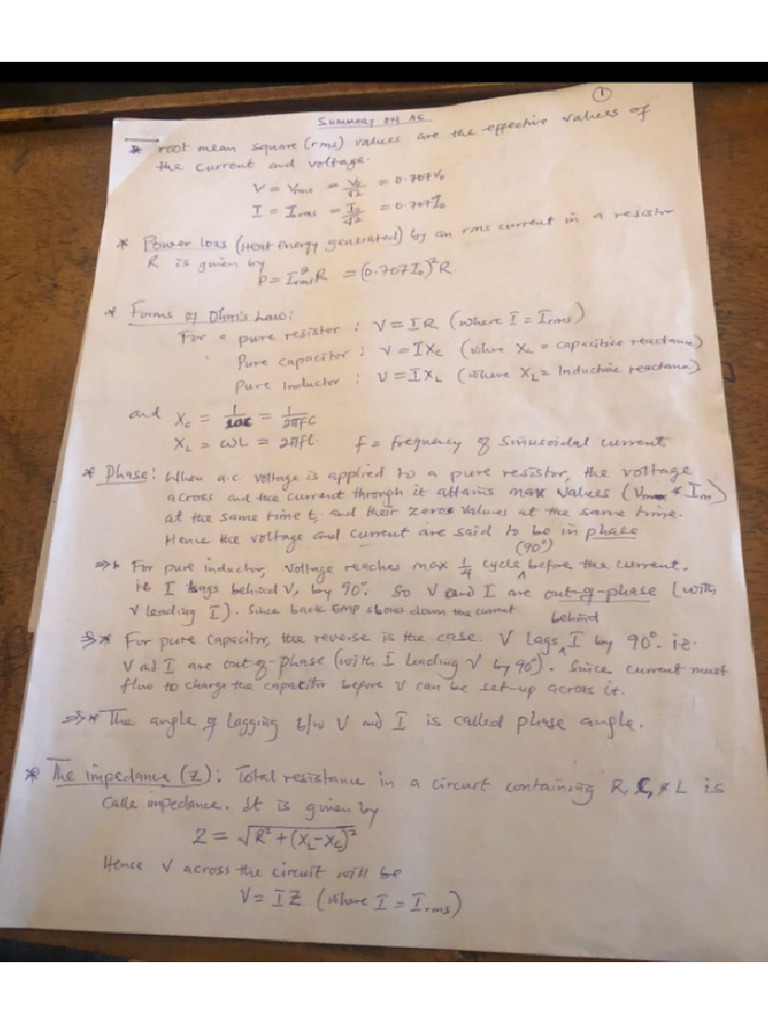 1
SUMMARY ON AC
* root mean square (rms) values are the effective values of
the current and voltage.
V = Vrms = V₀/√2 = 0.707V₀
I = Irms = I₀/√2 = 0.707I₀
* Power loss (Heat energy generated) by an rms current in a resistor
R is given by
P = I²rmsR = (0.707I₀)²R.
* Forms of Ohm's Law:
For a pure resistor : V = IR (where I = Irms)
Pure capacitor : V = IXc (where Xc = capacitive reactance)
Pure Inductor : V = IXL (where XL = Inductive reactance)
and Xc = 1/ωC = 1/2πfC
XL = ωL = 2πfL. f = frequency of sinusoidal current.
* Phase: When a.c. voltage is applied to a pure resistor, the voltage
across and the current through it attains max values (Vm & Im)
at the same time t, and their zero values at the same time.
Hence the voltage and current are said to be in phase
(90°)
⇒* For pure inductor, voltage reaches max 1/4 cycle ^ before the current.
ie I lags behind V, by 90°. So V and I are out-of-phase (with
V leading I). Since back EMF slows down the current
behind
⇒* For pure capacitor, the reverse is the case. V lags ^ I by 90°. ie.
V ad I are out-of-phase (with I leading V by 90°). Since current must
flow to charge the capacitor before V can be set-up across it.
⇒* The angle of lagging b/w V and I is called phase angle.
* The impedance (Z): Total resistance in a circuit containing R, C, & L is
calle impedance. It is given by
Z = √R² + (XL-Xc)²
Hence V across the circuit will be
V = IZ (where I = Irms)